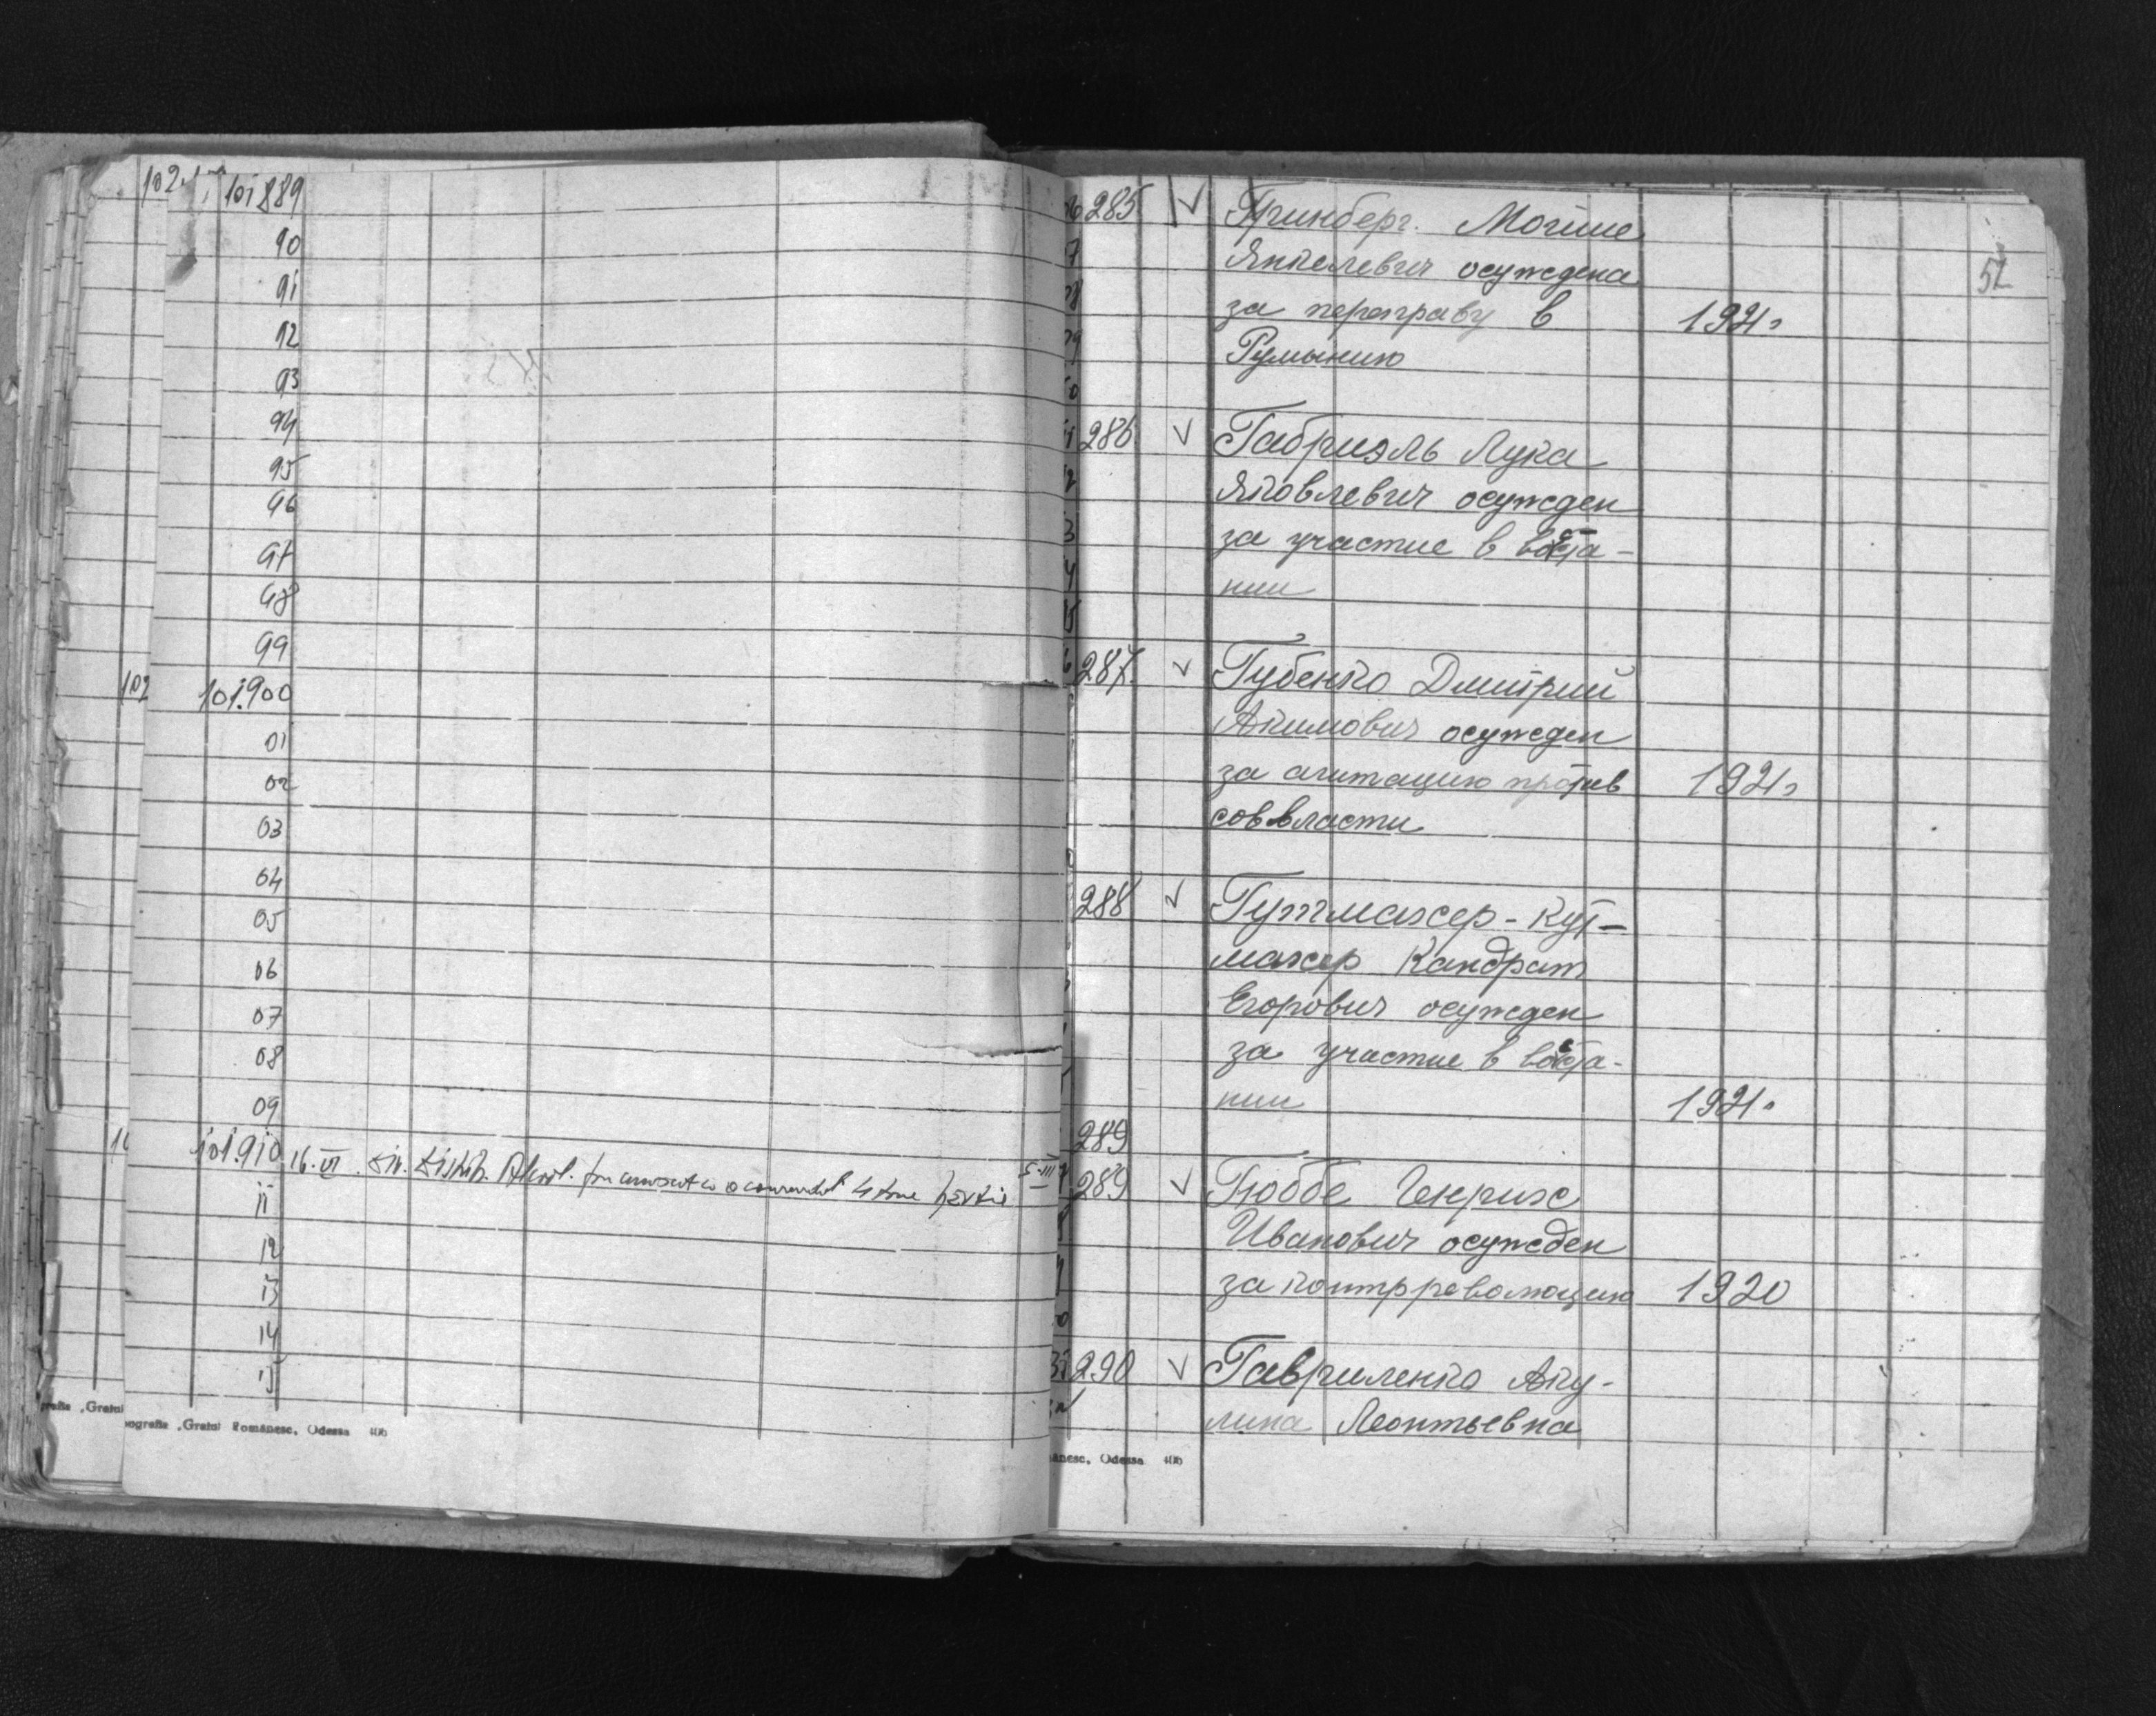 101889
90
91
92
93
94
95
96
97
98
99
101.900
01
02
03
04
05
06
07
08
09
101.910 16.VI.
11
12
13
14
15
ografia „Graiul Românesc, Odessa 406
52
285 √ Гринберг. Могиле
Янкелевич осуждена
за переправу в 1921г
Румынию
286 √ Габриэль Лука
Яковлевич осужден
за участие в воста-
нии
287. √ Губенко Дмитрий
Акимович осужден
за агитацию против 1921г
соввласти
288 √ Гутмахер - Кут-
махер Кандрат
Егорович осужден
за участие в воста-
нии 1921г
289
289 √ Гюббе Генрих
Иванович осужден
за контрреволюцию 1920
290 √ Гавриленко Аку-
лина Леонтьевна
ânesc, Odessa 406